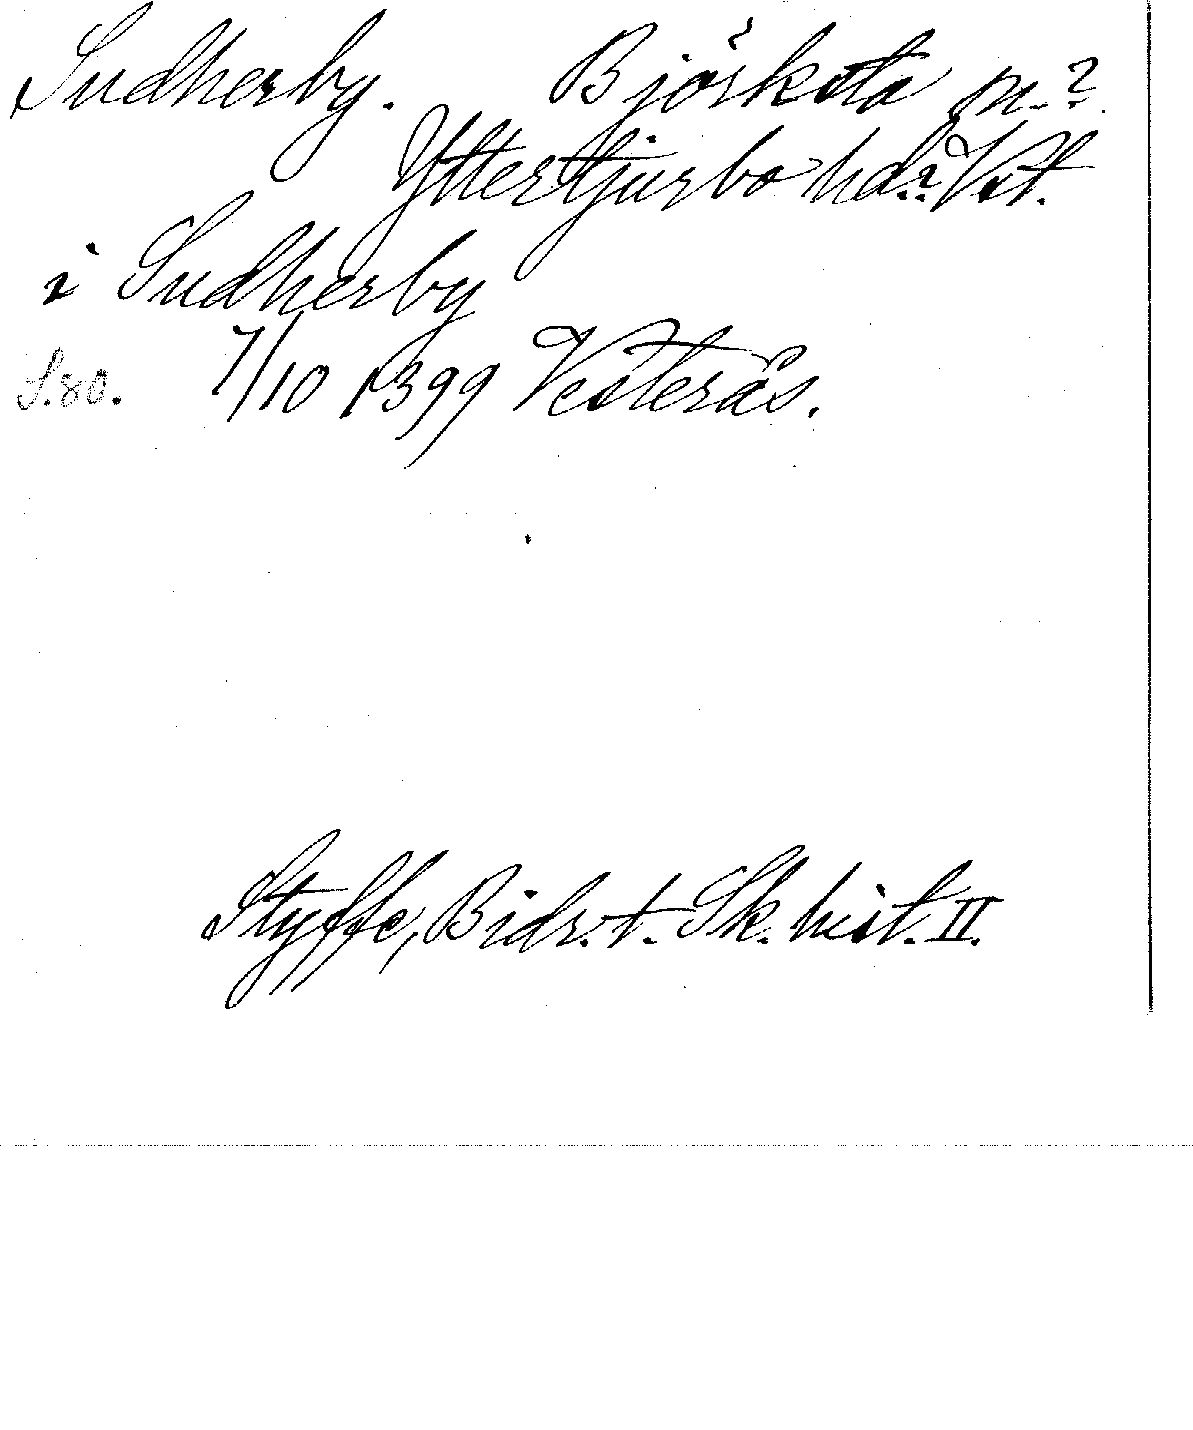 Sudherby. Björksta sn.?
Yttertjurbo hd.? Vst.
i Sudherby
S.80. 7/10 1399 Vesterås.
Styffe, Bidr. t. Sk. hist. II.